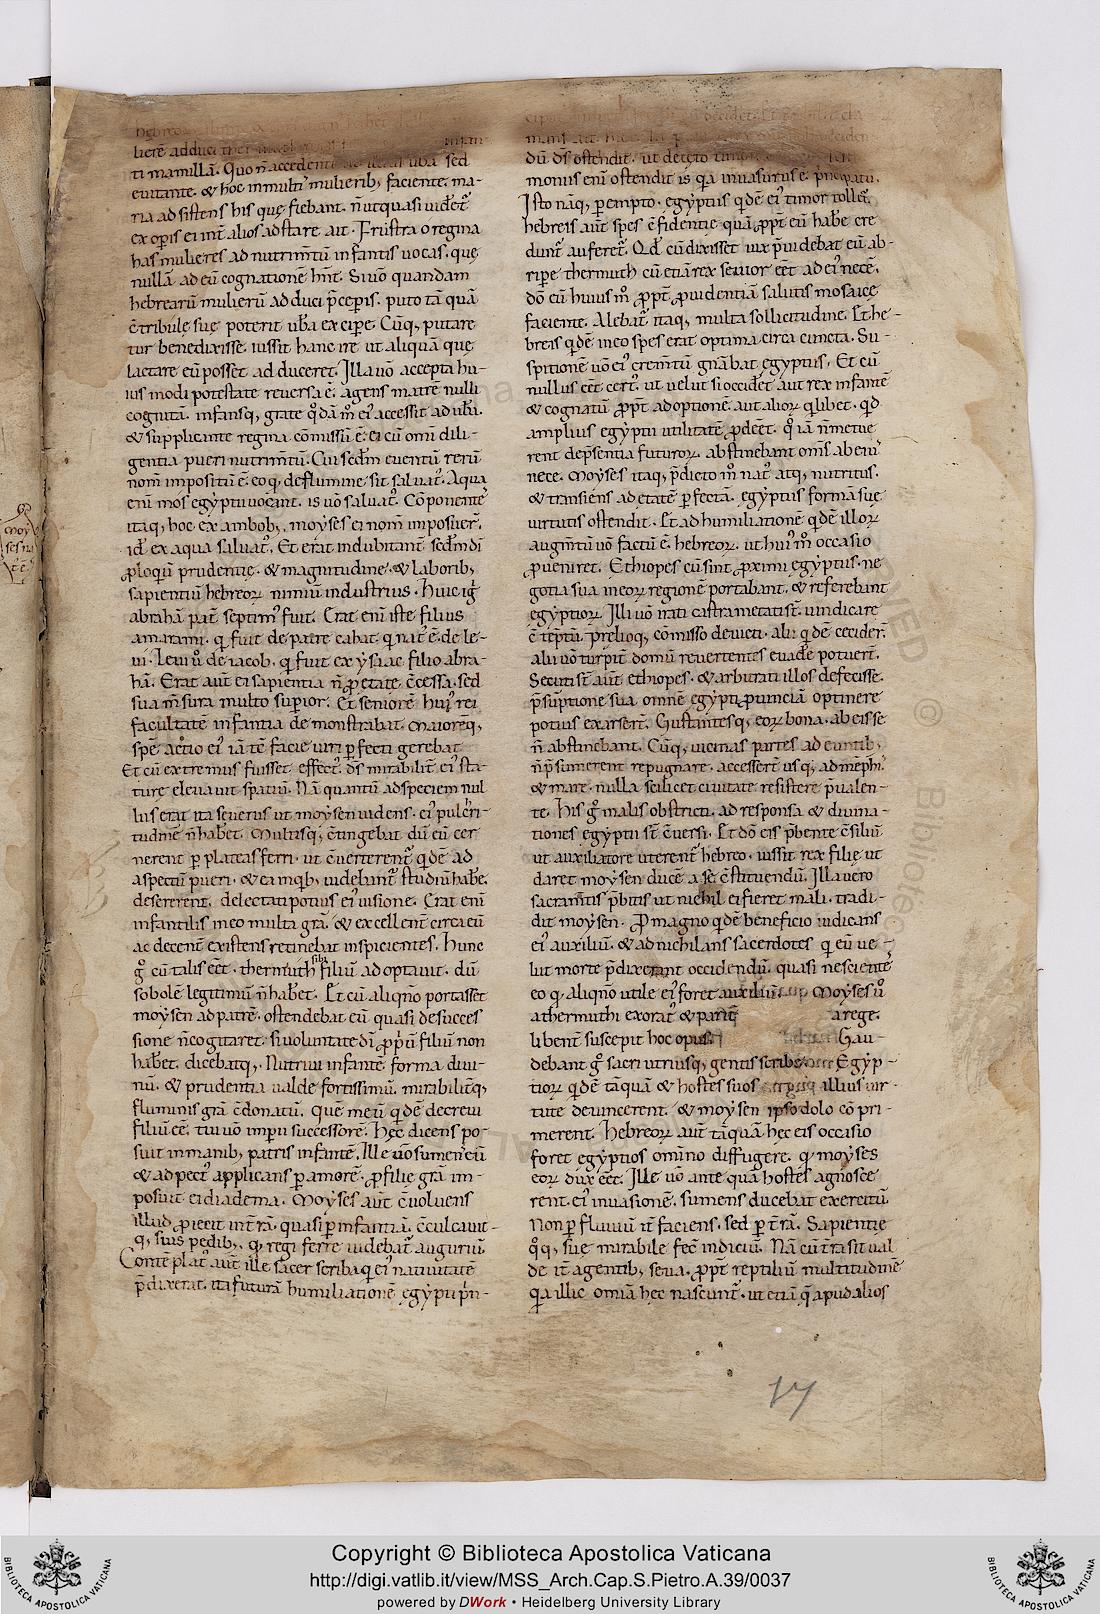 ti mamillā. Quo n̄ accedenti
euitante. & hoc in multis mulierib; faciente. ma-
ria adsistens his quę fiebant. n̄ ut quasi uideret̄
ex operis ei int̄ alios adstare ait. Frustra o regina
has mulieres ad nutrim̄tū infantis uocas. quę
nullā ad eū cognationē hn̄t. Si uō quandam
hebrearū mulierū adduci p̄ceperis. puto tā quā
c̄tribulē suę poterit ubera excipere. Cūq; putare
tur benedixisse. iussit hanc ire ut aliquā quę
lactare eū posset adduceret. Illa uō accepta hu-
ius modi potestate reuersa ē. agens matrē nulli
cognitā. infansq; grate q̇dā m̊ eius accessit ad ub̄a.
& supplicante regina cōmissū ē. ei cū omi dili-
gentia pueri nutrim̄tū. Cui scd̄m euentū rerū
nom̄ impositū ē. eo q̇ de flumine sit saluat'. Aqua
eni mos egyptii uocant. is uō saluat'. Cōponente
itaq; hoc ex ambob;. moyses ei nom̄ imposuer̄.
id ē ex aqua saluat'. Et erat indubitant̄ scd̄m dī
ꝓloquiū prudentię. & magnitudine. & laborib;
sapientiū hebreoꝝ nimiū industrius. Huic ig̊
abrahā pat̄ septim' fuit. Erat eni iste filius
amarami. qi fuit de patre cahat qi nat' ē. de le-
ui. Leui ů de iacob. qi fuit ex ysaac filio abra-
hā. Erat aut̄ ei sapientia n̄ ꝑ etatē c̄cessa. sed
sua m̄sura multo supior. Et seniorē huius rei
facultatē infantia demonstrabat. Maiorēq;
spē actio ei' iā tē facie uiri ꝑfecti gerebat
Et cū ex tremus fuisset effect'. dš mirabilit̄ ei' sta-
turę eleuauit spatiū. Nā quantū ad speciem nul
lus erat ita seuerus ut moysen uidens. ei' pulcri-
tudinē n̄ haberet. Multisq; c̄tingebat dū eū cer
nerent ꝑ plateas ferri. ut c̄uerterent̄ q̇dē ad
aspectū pueri. & ea in qib; uidebant̄ studiū habe.
desererent. delectati potius ei' uisione. Erat eni
infantilis in eo multa gr̄a. & excellent̄ circa eū
ac decent̄ existens retinebat inspicientes. Hunc
g̊ cū talis eēt. thermuth sibi filiū adoptauit. dū
sobolē legitimū n̄ haberet. Et cū aliqn̄o portasset
moysen ad patrē. ostendebat eū quasi de succes
sione n̄ cogitaret. si uoluntate dī ꝓpriū filiū non
haberet. dicebatq;. Nutriui infantē forma diui-
nū. & prudentia ualde fortissimū. mirabilit̄q;
fluminis gr̄a c̄donatū. Que meū q̇dē decreui
filiū eē. tui uō imperii successorē. Hęc dicens po-
suit in manib; patris infantē. Ille uō sumens eū
& ad pect' applicans ꝑ amorē. ꝓ filie gr̄a im-
posuit ei diadema. Moyses aut̄ c̄uoluens
illud ꝓiecit in t̄rā. quasi ꝑ infantiā. c̄culcauit-
q; suis pedib;. qd̄ regi ferre uidebat̄ auguriū.
Contēplat' aut̄ ille sacer scriba qi ei' natiuitatē
p̄dixerat. ita futurā humiliationē egypti p̄n-
dū. dš ostendit. ut deiecto timore
monius eni ostendit is qi a inuasurus ē. principatū.
Isto naq; ꝑempto. egyptiis q̇dē ei' timor tollet̄.
hebreis aut̄ spes c̄fidentię quā ꝓpt̄ eū habe cre
dunt̄ auferet̄. Qd̄ cū dixisset uix p̄uidebat eū ab-
ripere thermuth cū etiā rex seuior eēt ad ei' necē.
dō eū huius m̊ ꝓpt̄ ꝓuidentiā salutis mosaicę
faciente. Alebat̄ itaq; multa sollicitudine. Et he-
breis q̇dē in eo spes erat optima circa cuncta. Su-
spitionē uō ei' crem̄tū gn̄abat egyptiis. Et cū
nullus eēt cert'. ut uelut si occideret aut rex infantē
& cognatū ꝓpt̄ adoptionē. aut alioꝝ qilibet. qd̄
amplius egyptii utilitatē ꝓdeēt. qi iā n̄ metue
rent dep̄sentia futuroꝝ. abstinebant om̄s ab eius
nece. Moyses itaq; p̄dicto m̊ nat' atq; nutritus.
& transiens ad etatē ꝑfectā. egyptiis formā suę
uirtutis ostendit. Et ad humiliationē q̇dē illoꝝ
augm̄tū uō factū ē. hebreoꝝ. ut hui' m̊ occasio
ꝓueniret. Ethiopes cū sint ꝓximi egyptiis. ne
gotia sua in eoꝝ regionē portabant. & referebant
egyptioꝝ. Illi uō irati castra metati st̄. uindicare
c̄tēptū. Prelioq; cōmisso deuicti. alii q̇dē ceciderunt.
alii uō turpit̄ domū reuertentes euadē potuer̄.
Secuti st̄ aut̄ ethiopes. & arbitrati illos defecisse.
p̄suptione sua omnē egypti ꝓuinciā optinere
potius exarser̄. Gustantesq; eoꝝ bona. ab eis se
n̄ abstinebant. Cūq; uicinas partes adeuntib;
n̄ p̄sumerent repugnare. accesser̄t usq; ad mēphi.
& mare. nulla scilicet ciuitate resistere p̄ualen-
te. His g̊ malis obstricti. ad responsa & diuina-
tiones egyptii st̄ c̄uersi. Et dō eis p̄bente c̄siliū
ut auxiliatore uterent̄ hebreo. iussit rex filię ut
daret moysen ducē a se c̄stituendū. Illa uero
sacram̄tis p̄bitis ut nichil ei fieret mali. tradi-
dit moysen. Pro magno q̇dē beneficio iudicans
ei' auxiliū. & adnichilans sacerdotes qi eū ue-
lut morte p̄dixerant occidendū. quasi nescientē
eo q̇ aliqn̄o utile ei' foret auxiliū. Moyses ů
a thermuthi exorat' & pariter a rege.
libent̄ suscepit hoc opus. Gau-
debant g̊ sacri utriusq; gentis scribe. Egyp-
tioꝝ q̇dē tāquā & hostes suos illius uir-
tute deuincerent. & moysen ipso dolo cōpri-
merent. Hebreoꝝ aut̄ tāquā hęc eis occasio
foret egyptios omīno diffugere. qd̄ moyses
eoꝝ dux eēt. Ille uō ante quā hostes agnosce
rent ei' inuasionē. sumens ducebat exercitū.
Non ꝑ fluuiū it̄ faciens. sed ꝑ t̄rā. Sapientię
q̊q; suę mirabile fecit indiciū. Nā cū t̄ra sit ual
de it̄ agentib; seua. ꝓpt̄ reptiliū multitudinē
qi a illic omīa hęc nascunt̄. ut etiā q̄ apud alios
17
Copyright © Biblioteca Apostolica Vaticana
http://digi.vatlib.it/view/MSS_Arch.Cap.S.Pietro.A.39/0037
powered by DWork • Heidelberg University Library